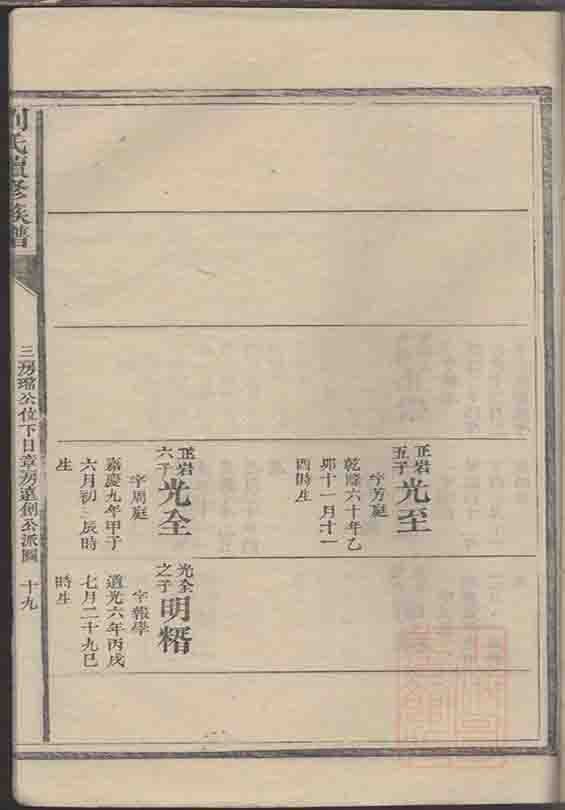 正岩
五子
光至
字芳庭
乾隆六十年乙
卯十一月十一
酉時生
正岩
六子
光全
字周庭
嘉慶九年甲子
六月初三辰時
生
光全
之子
明糈
字報學
道光六年丙戌
七月二十九巳
時生
劉氏續修族譜
三房瑺公位下日章房道創公派圖
十九